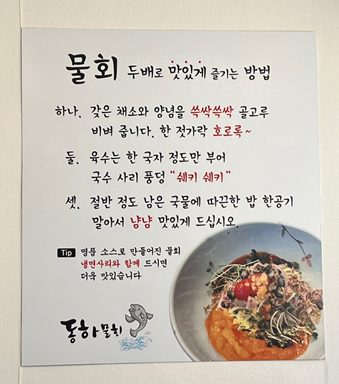 물회 두배로 맛있게 즐기는 방법
하나. 갖은 채소와 양념을 쓱싹쓱싹 골고루
비벼 줍니다. 한 젓가락 호로록~
둘. 육수는 한 국자 정도만 부어
국수 사리 풍덩 "쉐키 쉐키"
셋. 절반 정도 남은 국물에 따끈한 밥 한공기
말아서 냠냠 맛있게 드십시오.
Tip 명품 소스로 만들어진 물회
냉면사리와 함께 드시면
더욱 맛있습니다
동하물회